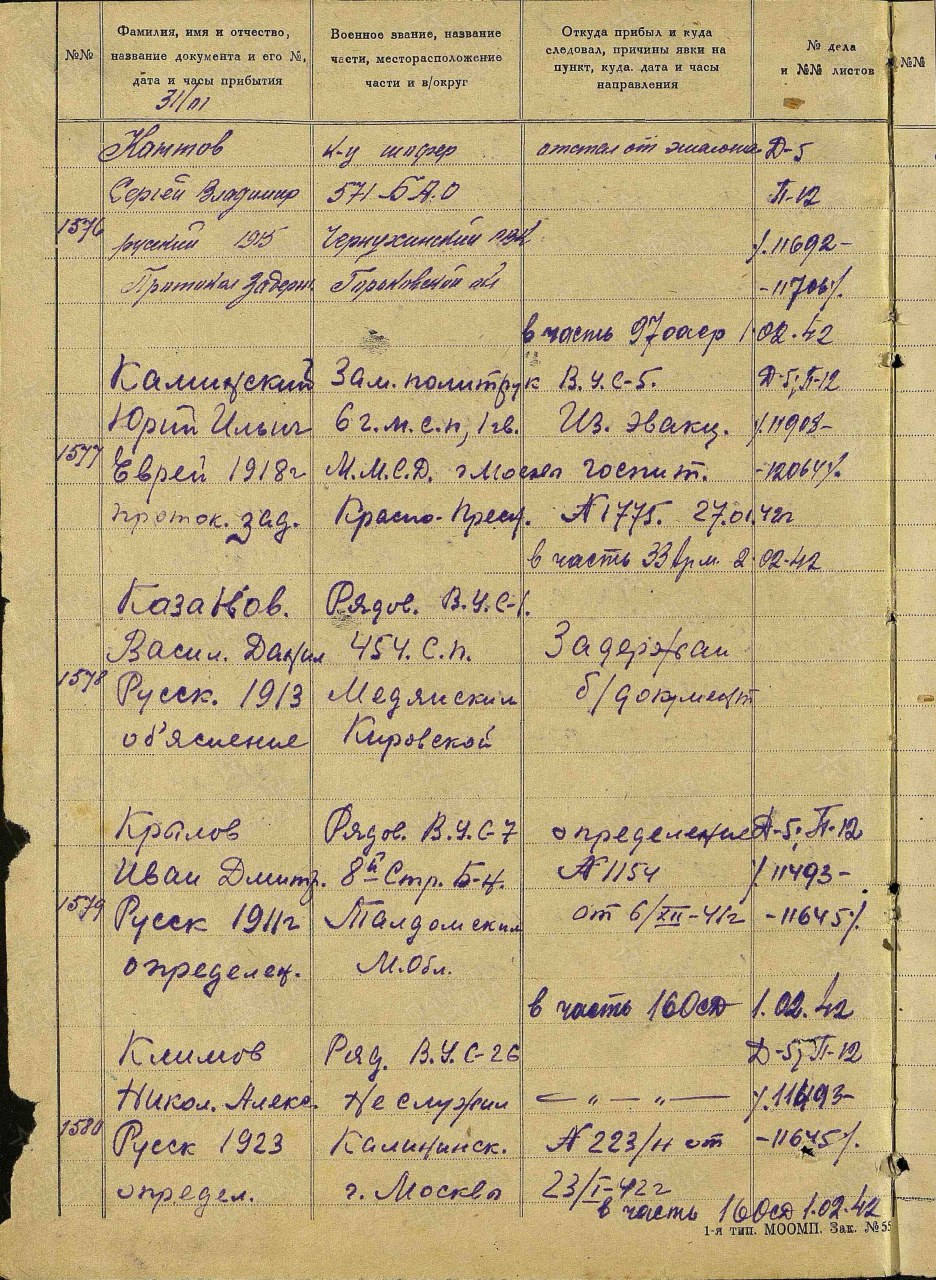 №№
Фамилия, имя и отчество,
название документа и его №,
дата и часы прибытия
31/01
Военное звание, название
части, месторасположение
части и в/округ
Откуда прибыл и куда
следовал, причины явки на
пункт, куда. дата и часы
направления
№ дела
и №№ листов
№№
1576
Сергей Владимир
русский 1915
Протокол задерж.
к-ц шофер
571 БАО
Чернухинский
Горьковской обл
отстал от эшелона
Д-5
П-12
%11692-
-11706%
в часть 97 оаср 1.02.42
1577
Каминский
Юрий Ильич
Еврей 1918г
проток. зад.
Зам. политрук
6 г.м.с.п, 1 гв.
М.М.С.Д. г Москва
Красно-Пресн.
В.У.С-5.
Из. эвакц.
госпит.
№1775. 27.01.42г
Д-5; П-12
%11903-
-12064%
в часть 33 арм 2.02.42
1578
Казанов.
Васил. Данил
Русск. 1913
об'яснение
Рядов. В.У.С-1.
454. С.п.
Медянский
Кировской
Задержан
б/документ
1579
Крылов
Иван Дмитр.
Русск 1911г
определен.
Рядов. В.У.С-7
8й Стр. Б-н.
Талдомский
М.Обл.
определение
№1154
от 6/XII-41г
Д-5; П-12
%11493-
-11645%
в часть 160сд 1.02.42
1580
Климов
Никол. Алекс.
Русск 1923
определ.
Ряд. В.У.С-26
Не служил
Калининск.
г. Москвы
— " — " —
№223/н от
23/I-42г
Д-5; П-12
%11493-
-11645%
в часть 160сд 1.02.42
1-я тип. МООМП. Зак. №55